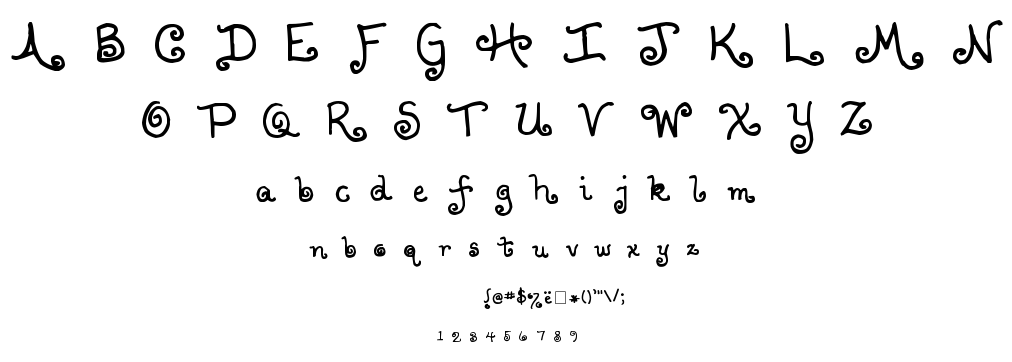 A B C D E F G H I J K L M N
O P Q R S T U V W X Y Z
a b c d e f g h i j k l m
n b o q r s t u v w x y z
@#$%ë□*()'"\/;
1 2 3 4 5 6 7 8 9